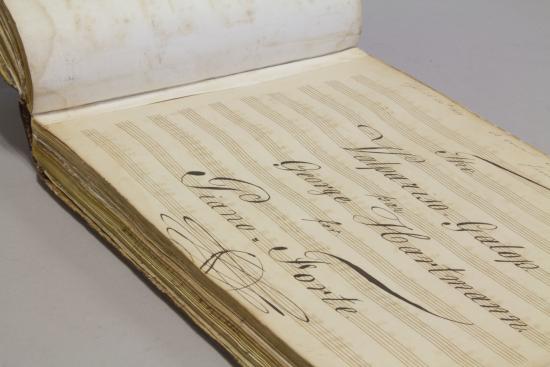 The
Valparaiso-Galop.
par
George Hartmann.
für
Piano-Forte